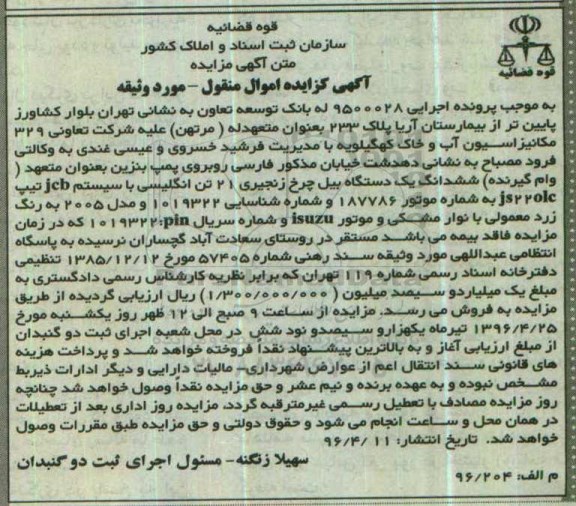 قوه قضائیه
سازمان ثبت اسناد و املاک کشور
متن آگهی مزایده
قوه قضائیه
آگهی کزایده اموال منقول – مورد وثیقه
به موجب پرونده اجرایی ۹۵۰۰۰۲۸ له بانک توسعه تعاون به نشانی تهران بلوار کشاورز
پایین تر از بیمارستان آریا پلاک ۲۳۳ بعنوان متعهدله ( مرتهن) علیه شرکت تعاونی ۳۲۹
مکانیزاسیون آب و خاک کهگیلویه با مدیریت فرشید خسروی و عیسی غندی به وکالتی
فرود مصباح به نشانی دهدشت خیابان مذکور فارسی روبروی پمپ بنزین بعنوان متعهد (
وام گیرنده) ششدانگ یک دستگاه بیل چرخ زنجیری ( ۲ تن انگلیسی با سیستم jcb تیپ
js۲۲۰lc به شماره موتور ۱۸۷۷۸۶ و شماره شناسایی ۱۰۱۹۳۲۲ و مدل ۲۰۰۵ به رنگ
زرد معمولی با نوار مشکی و موتور isuzu و شماره سریال pin:۱۰۱۹۳۲۲ که در زمان
مزایده فاقد بیمه می باشد مستقر در روستای سعادت آباد گچساران نرسیده به پاسگاه
انتظامی عبداللهی مورد وثیقه سند رهنی شماره ۵۷۴۰۵ مورخ ۱۳۸۵/۱۲/۱۲ تنظیمی
دفترخانه اسناد رسمی شماره ۱۱۹ تهران که برابر نظریه کارشناس رسمی دادگستری به
مبلغ یک میلیاردو سیصد میلیون ( ۱/۳۰۰/۰۰۰/۰۰۰) ریال ارزیابی گردیده از طریق
مزایده به فروش می رسد. مزایده از ساعت ۹ صبح الی ۱۲ ظهر روز یکشنبه مورخ
۱۳۹۶/۴/۲۵ تیرماه یکهزارو سیصدو نود شش در محل شعبه اجرای ثبت دو گنبدان
از مبلغ ارزیابی آغاز و به بالاترین پیشنهاد نقدا فروخته خواهد شد و پرداخت هزینه
های قانونی سند انتقال اعم از عوارض شهرداری– مالیات دارایی و دیگر ادارات ذیربط
مشخص نبوده و به عهده برنده و نیم عشر و حق مزایده نقدا وصول خواهد شد چنانچه
روز مزایده مصادف با تعطیل رسمی غیرمترقبه گردد، مزایده روز اداری بعد از تعطیلات
در همان محل و ساعت انجام می شود و حقوق دولتی و حق مزایده طبق مقررات وصول
خواهد شد. تاریخ انتشار: ۱۱ /۹۶/۴
سهیلا زنگنه– مسئول اجرای ثبت دو گنبدان
م الف: ۹۶/۲۰۴